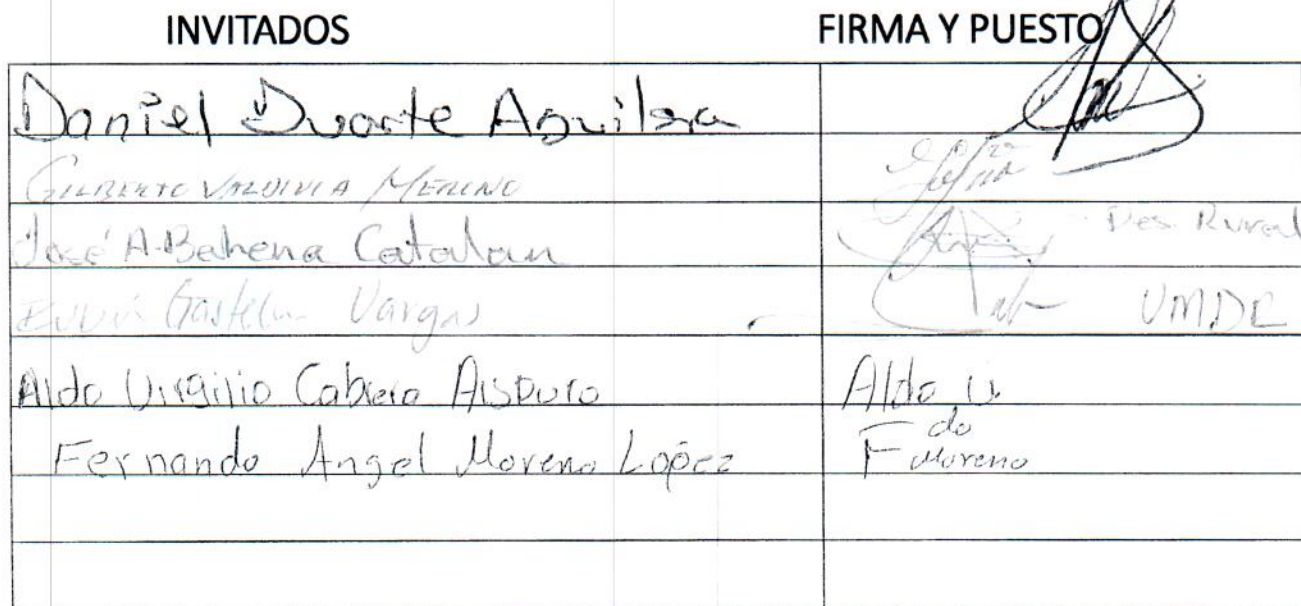 INVITADOS FIRMA Y PUESTO
Daniel Duarte Aguilera
GILBERTO VALDIVIA MERINO
José A. Bahena Catalan Des. Rural
Vargas
Aldo Virgilio Cabrera Aispuro Aldo V.
Fernando Angel Moreno López Fdo Moreno